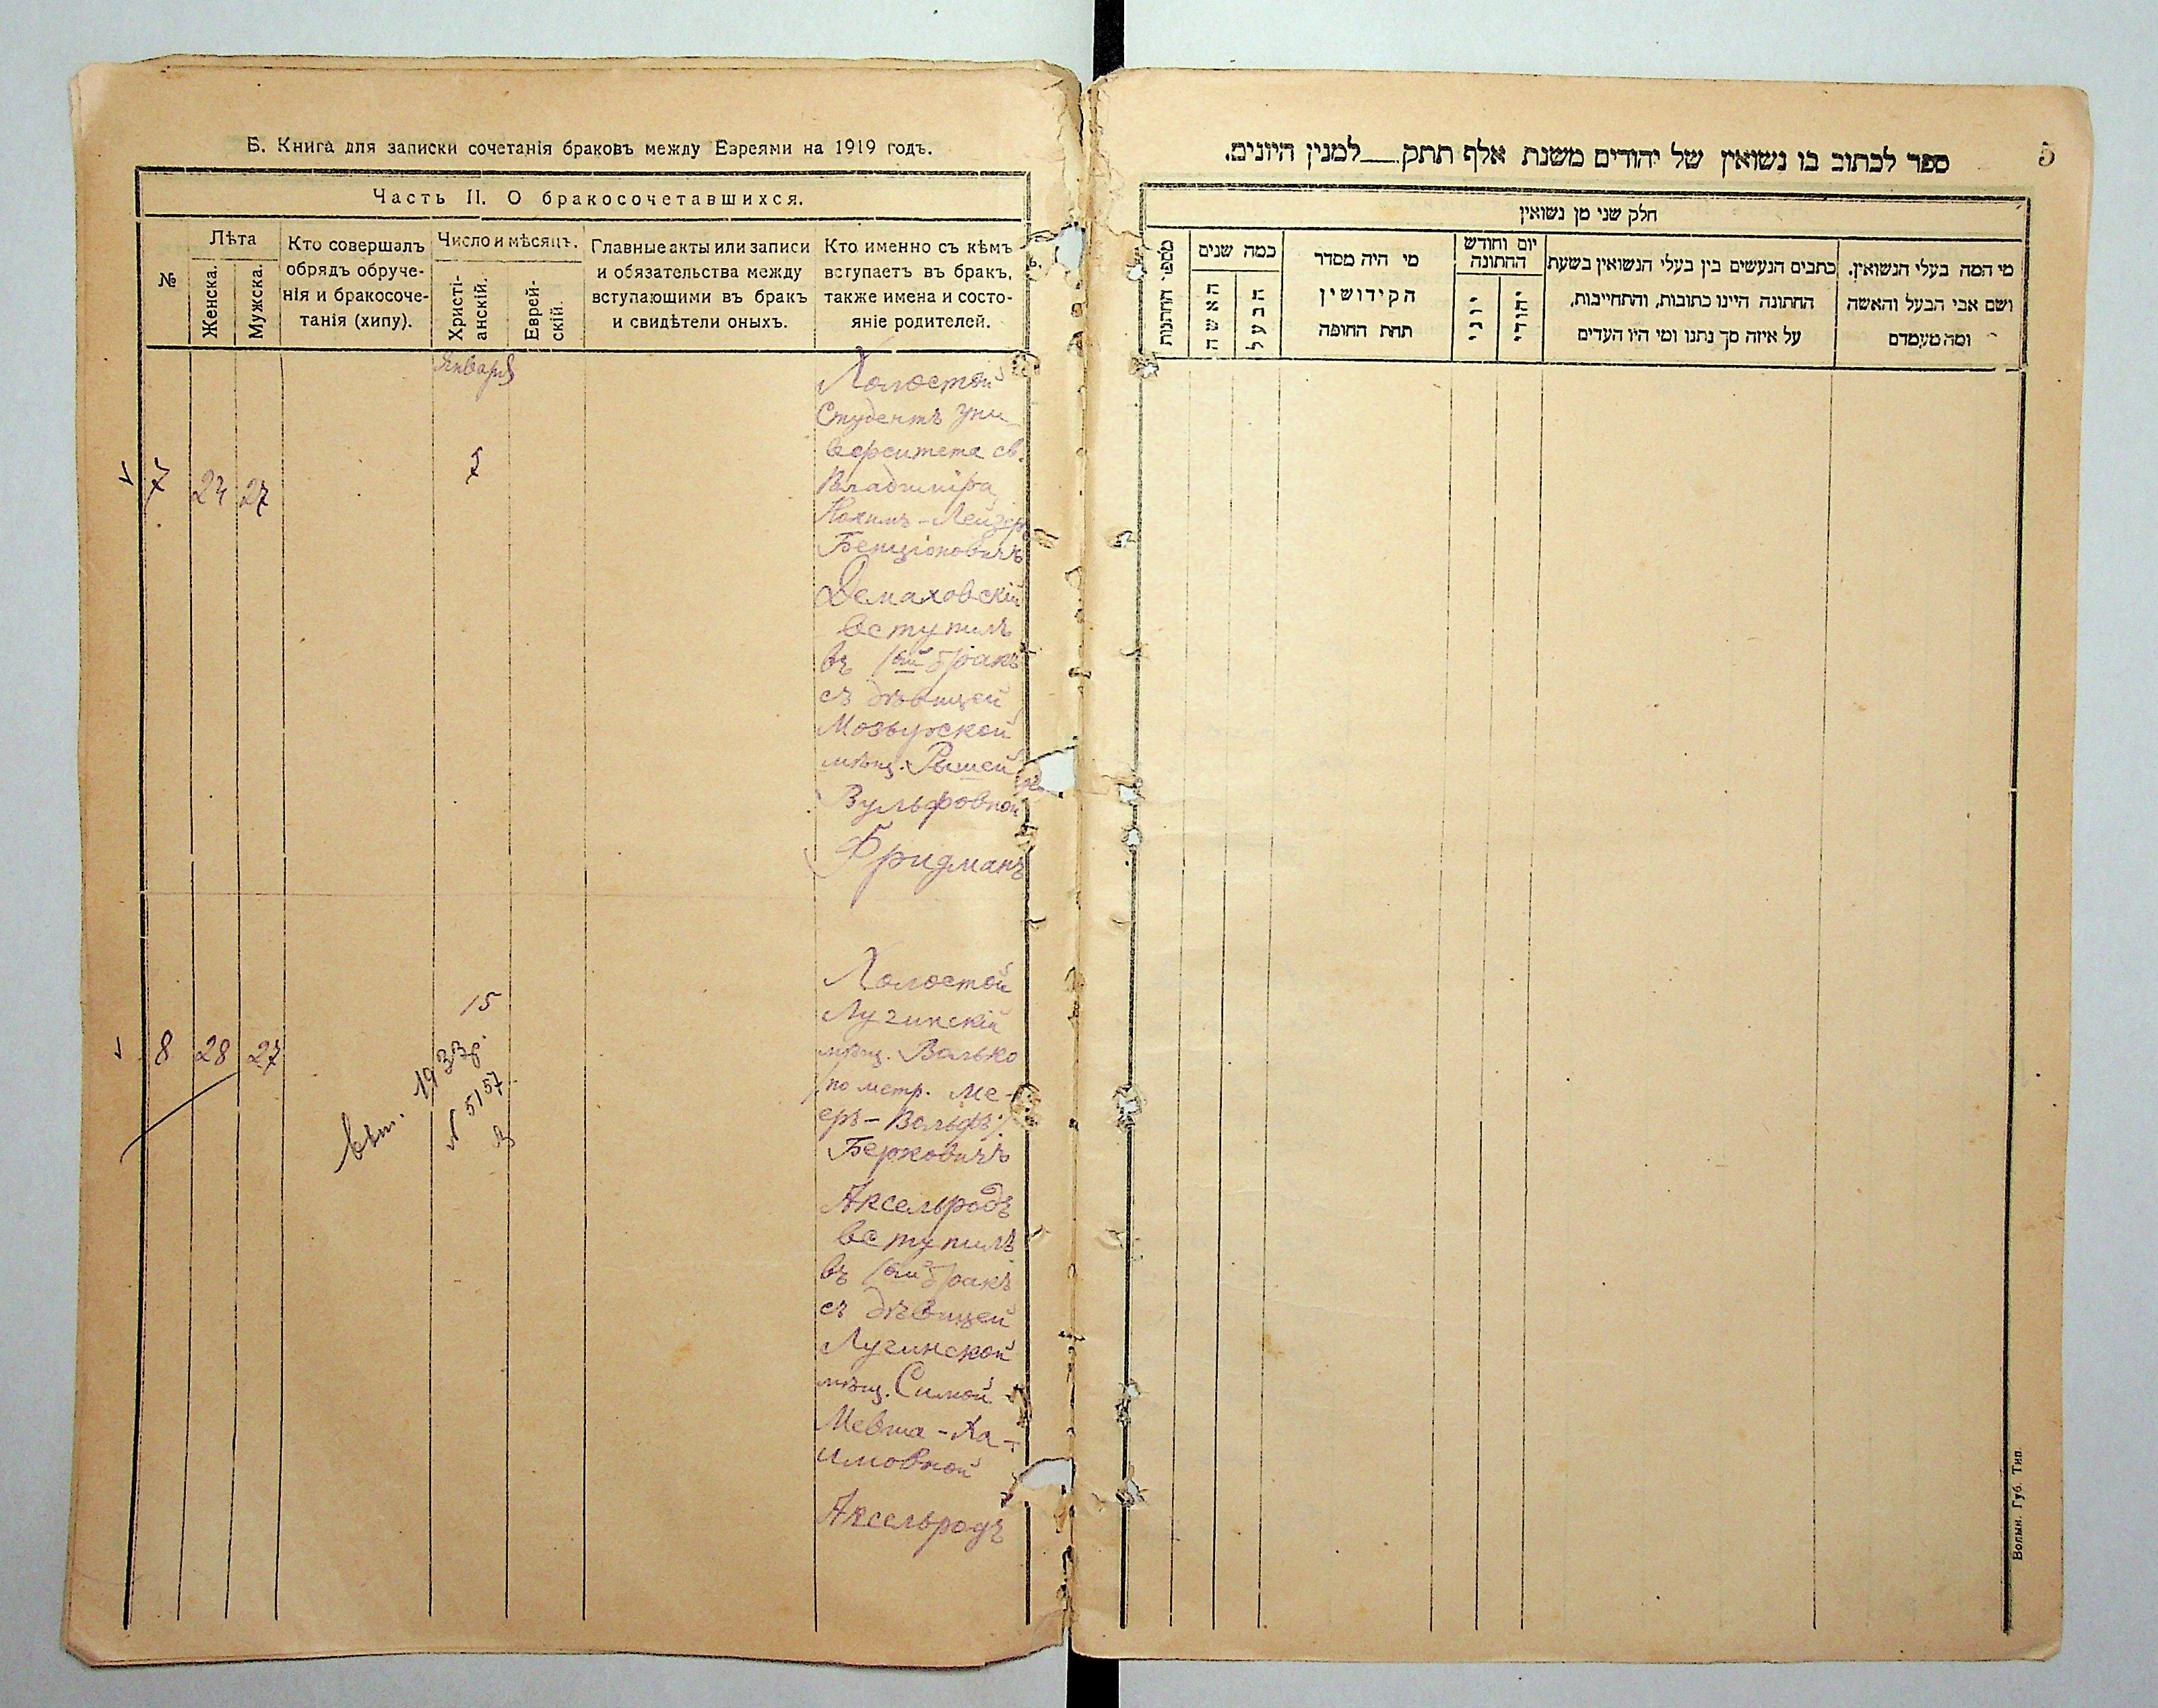 Б. Книга для записки сочетанія браковъ между Евреями на 1919 годъ.
Часть II. О бракосочетавшихся.
№
Лѣта
Женска.
Мужска.
Кто совершалъ
обрядъ обруче-
нія и бракосоче-
танія (хипу).
Число и мѣсяцъ.
Христі-
анскій.
Еврей-
скій.
Главные акты или записи
и обязательства между
вступающими въ бракъ
и свидѣтели оныхъ.
Кто именно съ кѣмъ
вступаетъ въ бракъ,
также имена и состо-
яніе родителей.
Января
7 24 27
Холостой
Студентъ Уни
верситета св.
Владиміра
Нохимъ-Лейзеръ
Бенціоновичъ
Демаховскій
вступилъ
въ 1ый бракъ
съ дѣвицей
Мозырской
мѣщ. Рысей
Вульфовной
Фридманъ
8 28 27
15
вып. 1933г.
№ 5157
Холостой
Лугинскій
мѣщ. Волько
/по метр. Ме-
еръ-Вольфъ/
Берковичъ
Аксельродъ
вступилъ
въ 1ый бракъ
съ дѣвицей
Лугинской
мѣщ. Симой
Мевша-Ха-
имовной
Аксельродъ
5
ספר לכתוב בו נשואין של יהודים משנת אלף תתק__למנין היונים.
חלק שני מן נשואין
מי המה בעלי הנשואין.
ושם אבי הבעל והאשה
ומה מעמדם
כתבים הנעשים בין בעלי הנשואין בשעת
החתונה היינו כתובות, והתחייבות,
על איזה סך נתנו ומי היו העדים
יום וחודש
החתונה
יהודי
יוני
מי היה מסדר
הקידושין
תחת החופה
כמה שנים
הבעל
האשה
מספר החתונות
Волын. Губ. Тип.